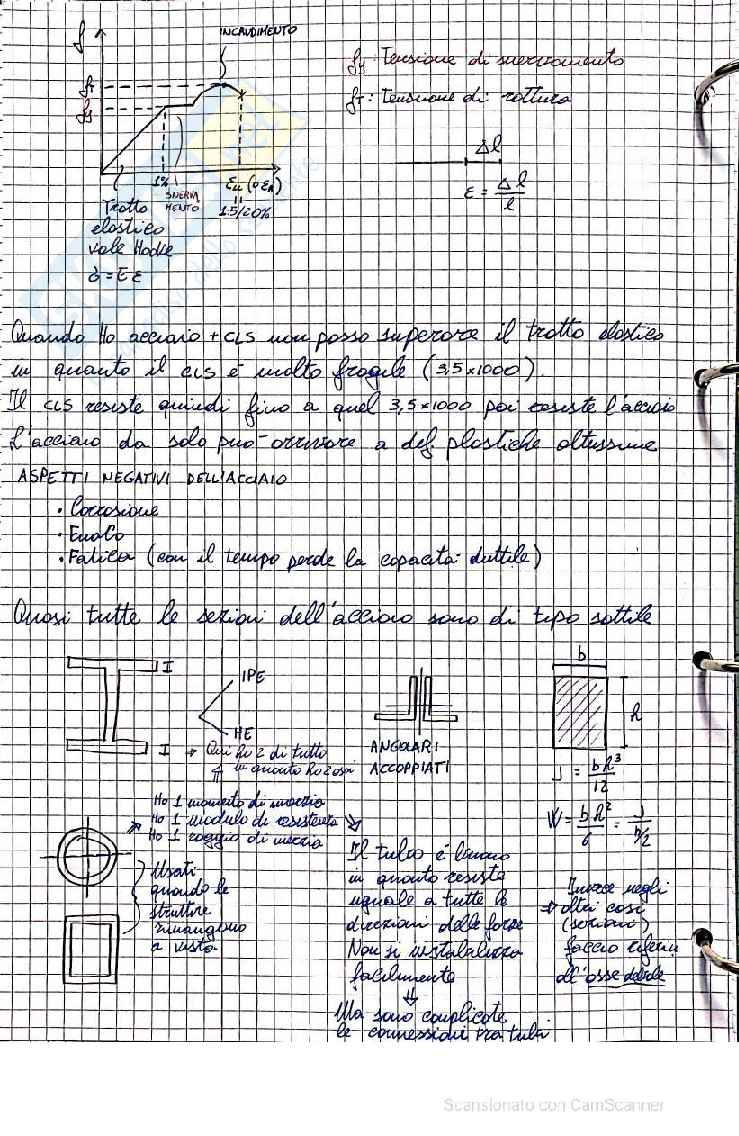 f
INCRUDIMENTO
ft
fy
fy: Tensione di snervamento
ft: Tensione di rottura
Δl
ε = Δl / l
1%
SNERVA
MENTO
εu (o εR)
15/20%
Tratto
elastico
vale Hooke
σ = E ε
Quando Ho acciaio + CLS non posso superare il tratto elastico
in quanto il CLS è molto fragile (3,5 x 1000)
Il CLS resiste quindi fino a quel 3,5 x 1000 poi resiste l'acciaio
L'acciaio da solo può arrivare a def. plastiche altissime
ASPETTI NEGATIVI DELL'ACCIAIO
• Corrosione
• Fuoco
• Fatica (con il tempo perde la capacità duttile)
Quasi tutte le sezioni dell'acciaio sono di tipo sottile
I
IPE
HE
I → Qui ho 2 di tutto
in quanto ho 2 assi
ANGOLARI
ACCOPPIATI
b
h
J = b h³ / 12
W = b h² / 6 = J / h/2
Ho 1 momento di inerzia
Ho 1 modulo di resistenza
Ho 1 raggio di inerzia
Usati
quando le
strutture
rimangono
a vista
Il tubo è buono
in quanto resiste
uguale a tutte le
direzioni delle forze
Non si instabilizza
facilmente
⇓
Ma sono complicate
le connessioni tra tubi
Invece negli
⇒ altri casi
(sezioni)
faccio riferim
all'asse debole
Scansionato con CamScanner